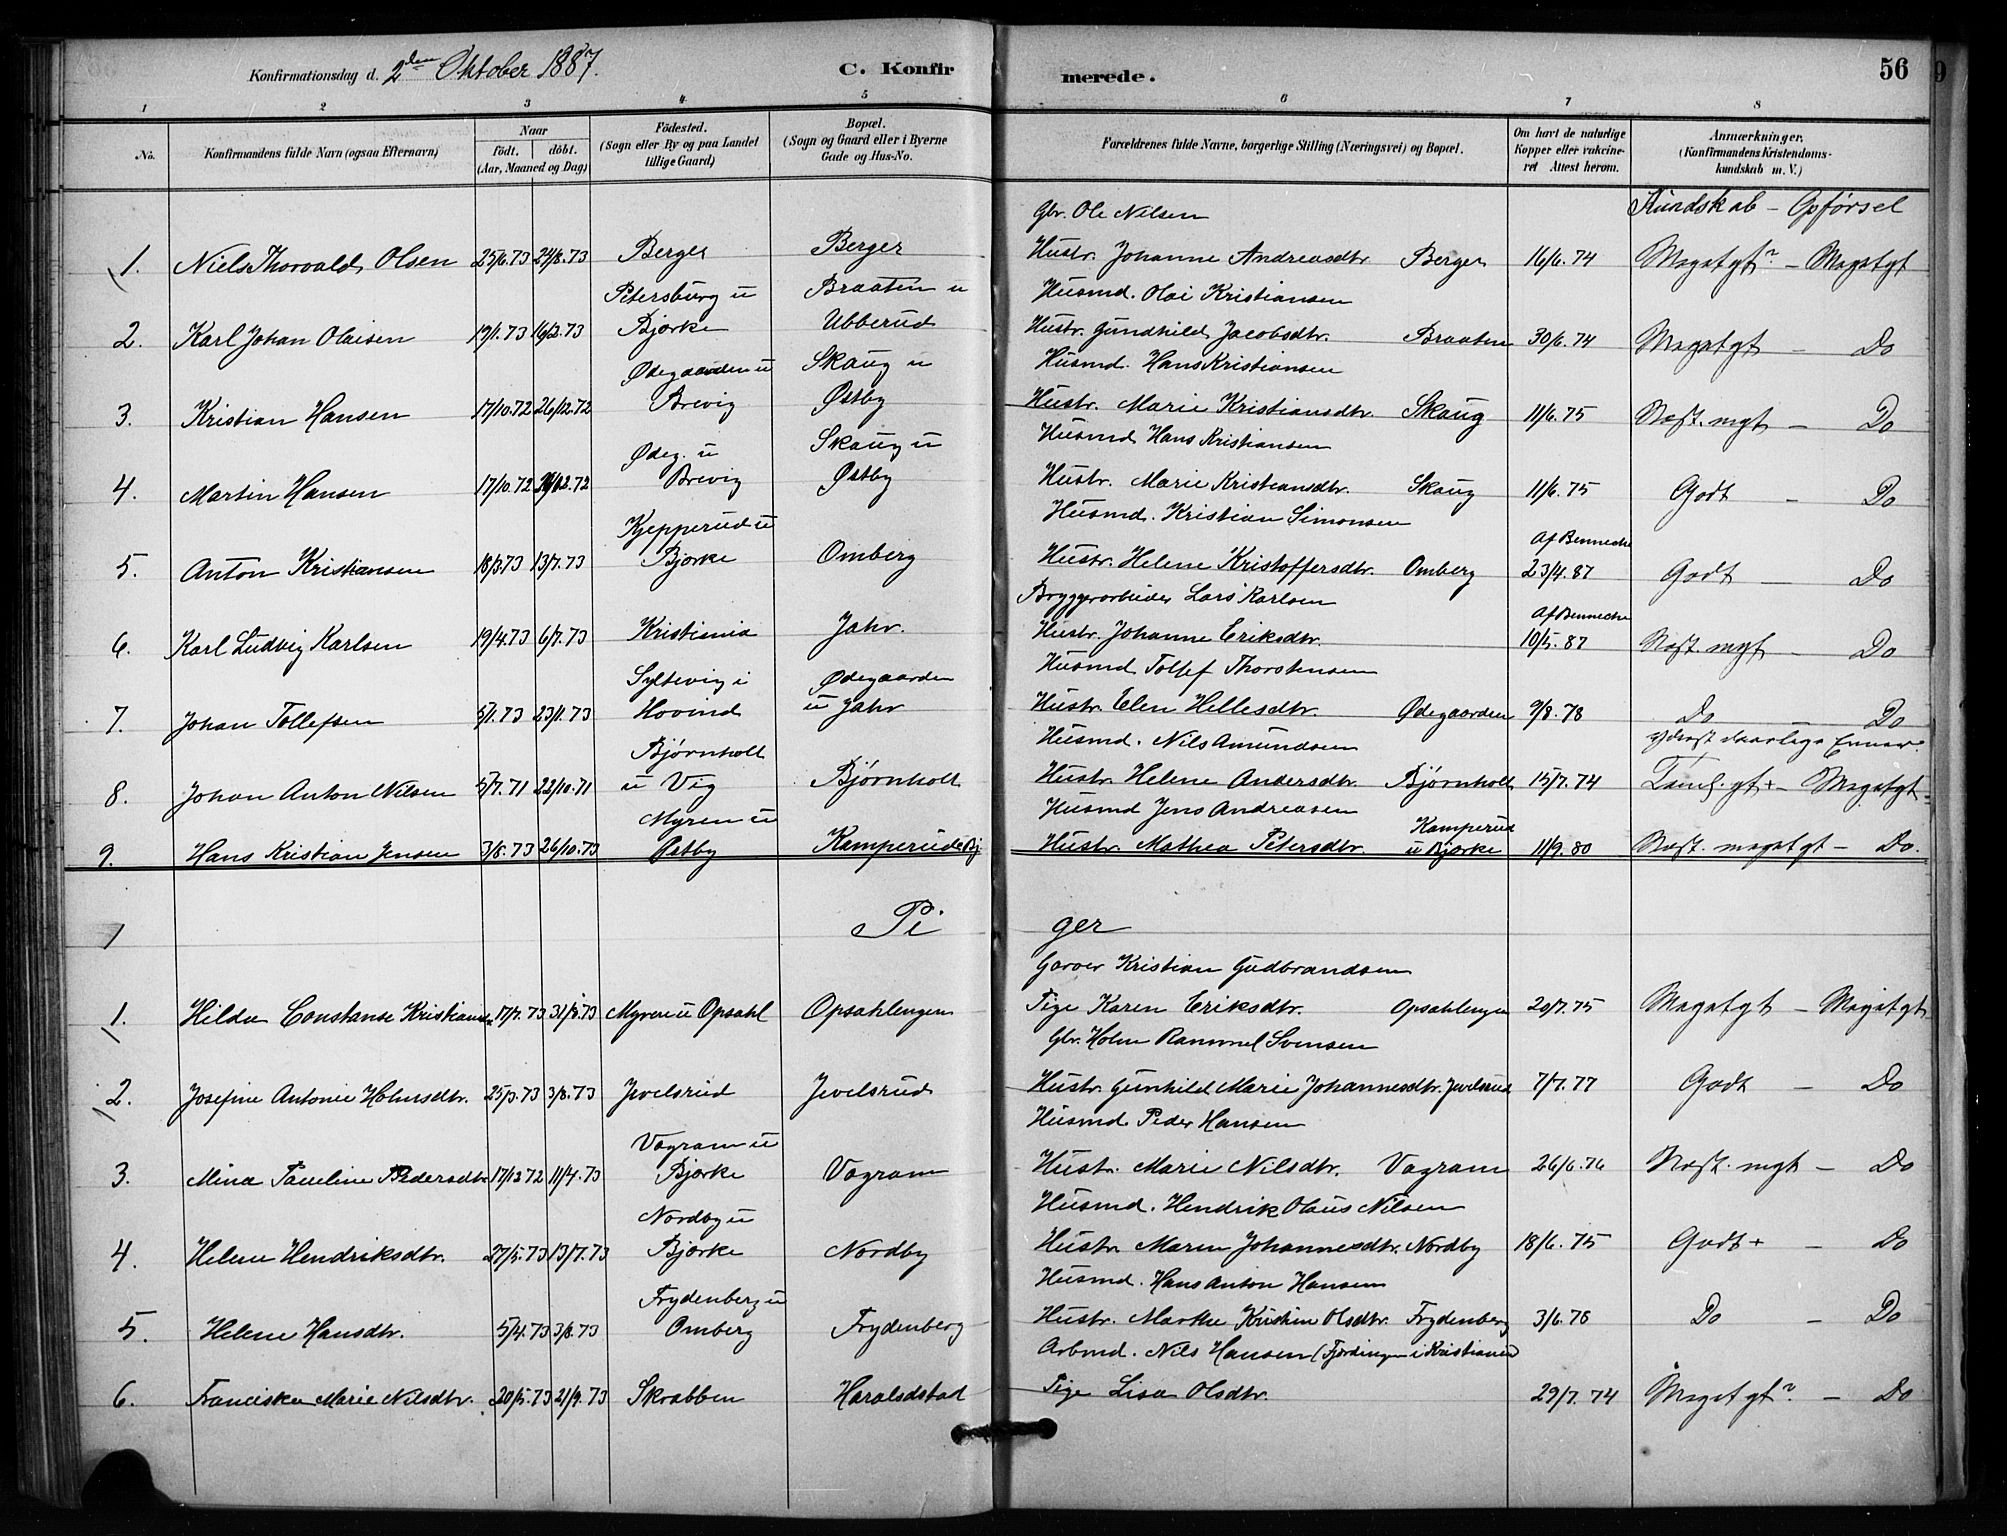 Konfirmationsdag d. 2den Oktober 1887. C. Konfir merede. 56
1 2 3 4 5 6 7 8
No. Konfirmandens fulde Navn (ogsaa Efternavn) Naar født. døbt. (Aar, Maaned og Dag) Fødested. (Sogn eller By og paa Landet tillige Gaard) Bopæl. (Sogn og Gaard eller i Byerne Gade og Hus-No. Forældrenes fulde Navne, borgerlige Stilling (Næringsvei) og Bopæl. Om havt de naturlige Kopper eller vakcineret Attest herom. Anmærkninger, (Konfirmandens Kristendomskundskab m. V.)
Gbr. Ole Nilsen Kundskab – Opførsel
1. Niels Thorvald Olsen 25/6.73 24/8.73 Berger Berger Hustr. Johanne Andreasdtr Berger 16/6.74 Megetgt? – Megetgt
Petersburg u Braaten u Husmd. Olai Kristiansen
2. Karl Johan Olaisen 19/1.73 16/2.73 Bjørke Ubberud Hustr. Gundhild Jacobsdtr. Braaten 30/6.74 Megetgt – Do
Ødegaarden u Skaug u Husmd. Hans Kristiansen
3. Kristian Hansen 17/10.72 26/12.72 Brevig Østby Hustr. Marie Kristiansdtr. Skaug 11/6.75 Næst. mgt – Do
Ødeg. u Skaug u Husmd Hans Kristiansen
4. Martin Hansen 17/10.72 26/12.72 Brevig Østby Hustr. Marie Kristiansdtr. Skaug 11/6.75 Godt – Do
Kjepperud u Husmd. Kristian Simonsen Af Bennecke
5. Anton Kristiansen 18/3.73 13/7.73 Bjørke Omberg Hustr. Helene Kristoffersdtr. Omberg 23/4.87 Godt – Do
Bryggerarbeider Lars Karlsen Af Bennecke
6. Karl Ludvig Karlsen 19/4.73 6/7.73 Kristiania Jahr. Hustr. Johanne Eriksdtr. 10/5.87 Næst. mgt – Do
Syltevig i Ødegaarden Husmd Tollef Thorstensen
7. Johan Tollefsen 5/1.73 23/1.73 Hovind u Jahr Hustr. Elen Hellesdtr. Ødegaarden 9/8.78 Do – Do
Bjørnholt Husmd. Nils Amundsen yderst daarlige
8. Johan Anton Nilsen 5/7.71 22/10.71 u Vig Bjørnholt Hustr Helene Andersdtr. Bjørnholt 15/7.74 Taml. gt + – Megetgt
Myren u Husmd Jens Andreasen Kamperud
9. Hans Kristian Jensen 3/8.73 26/10.73 Østby Kamperud Bj Hustr. Mathea Petersdtr. u Bjørke 11/9.80 Næst. megetgt – Do.
Pi ger
Garver Kristian Gudbrandsen
1. Hilda Constanse 17/7.73 Myren u Opsahl Opsahlengen Pige Karen Eriksdtr. Opsahlengen 20/7.75 Megetgt – Megetgt
Gbr. Holm Svensen
2. Josefine Antonie Holmsdtr. 25/3.73 3/8.73 Jvelsrud Jvelsrud Hustr. Gunhild Marie Johannesdtr. Jvelsrud 7/7.77 Godt – Do
Vagram u Husmd. Peder Hansen
3. Mina Pauline Pedersdtr 17/12 72 11/4.73 Bjørke Vagram Hustr. Marie Nilsdtr. Vagram 26/6.76 Næst. mgt – Do
Nordby u Husmd. Hendrik Olaus Nilsen
4. Helene Hendriksdtr. 27/5.73 13/7.73 Bjørke Nordby Hustr. Maren Johannesdtr. Nordby 18/6.75 Godt + – Do
Frydenberg u Husmd. Hans Anton Hansen
5. Helene Hansdtr. 5/4.73 3/8.73 Omberg Frydenberg Hustr. Marthe Kristine Olsdtr. Frydenberg 3/6.78 Do – Do
Arbmd. Nils Hansen (Fjerdingen i Kristiania)
6. Franciska Marie Nilsdtr. 20/5.73 21/9.73 Skrabben Haraldstad Pige Lisa Olsdtr. 29/7.74 Megetgt? – Do